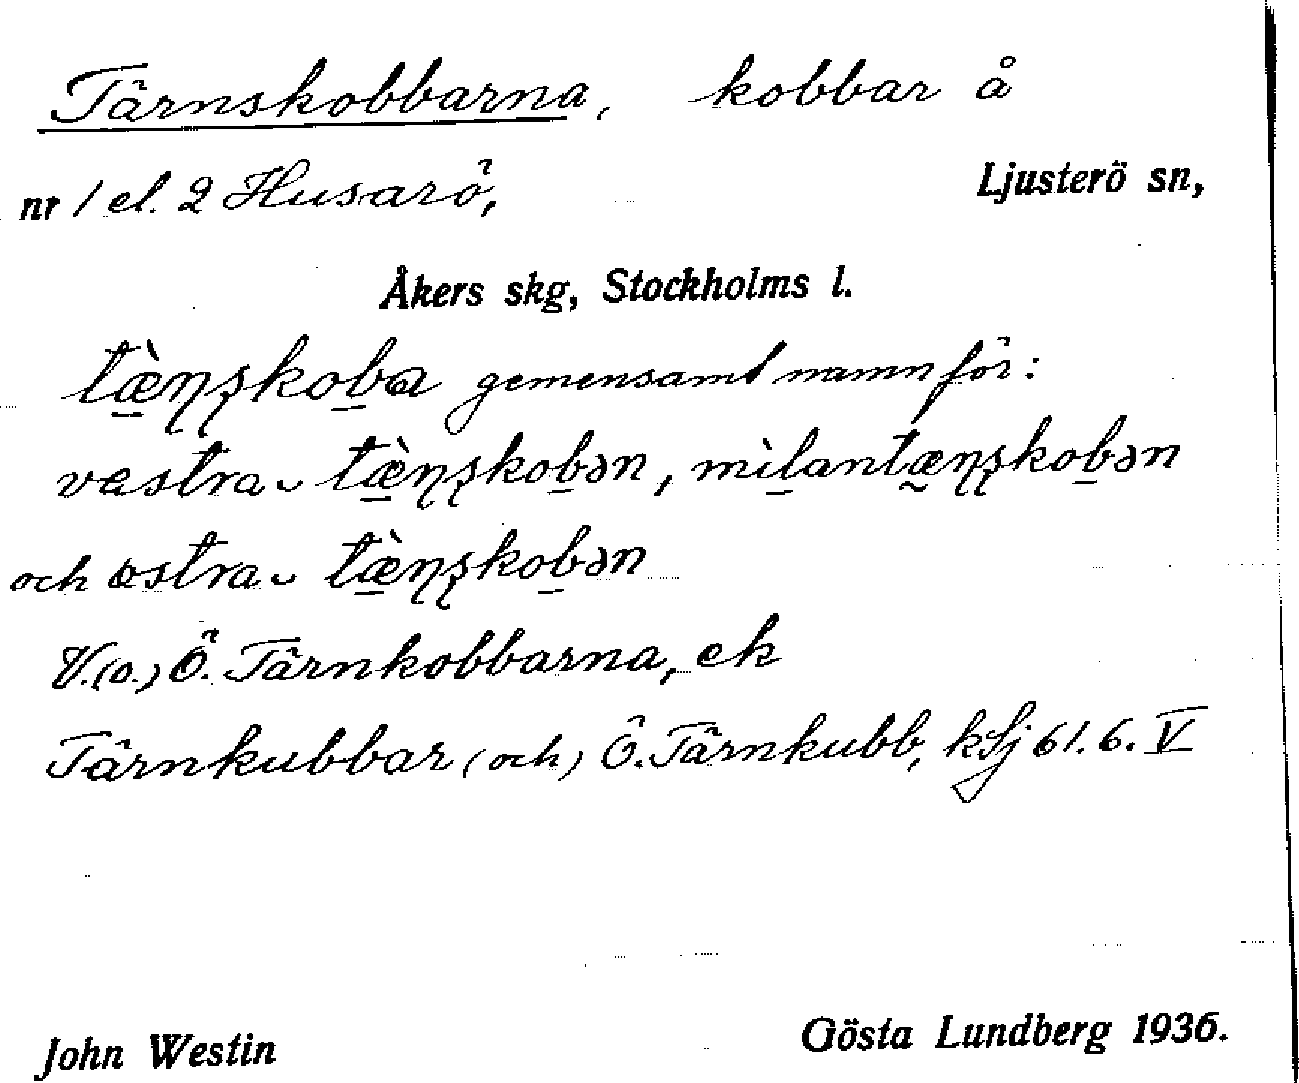 Tärnskobbarna, kobbar å
nr 1 el. 2 Husarö, Ljusterö sn,
Åkers skg, Stockholms l.
tæ̀ɳʂkoba gemensamt namn för:
vastra ᴗ tæ̀ɳʂkobən, mìlantæɳʂkobən
och ɵstra ᴗ tæ̀ɳʂkobən
V. (o.) Ö. Tärnkobbarna, ek
Tärnkubbar (och) Ö. Tärnkubb, ksj 61. 6. V
John Westin Gösta Lundberg 1936.